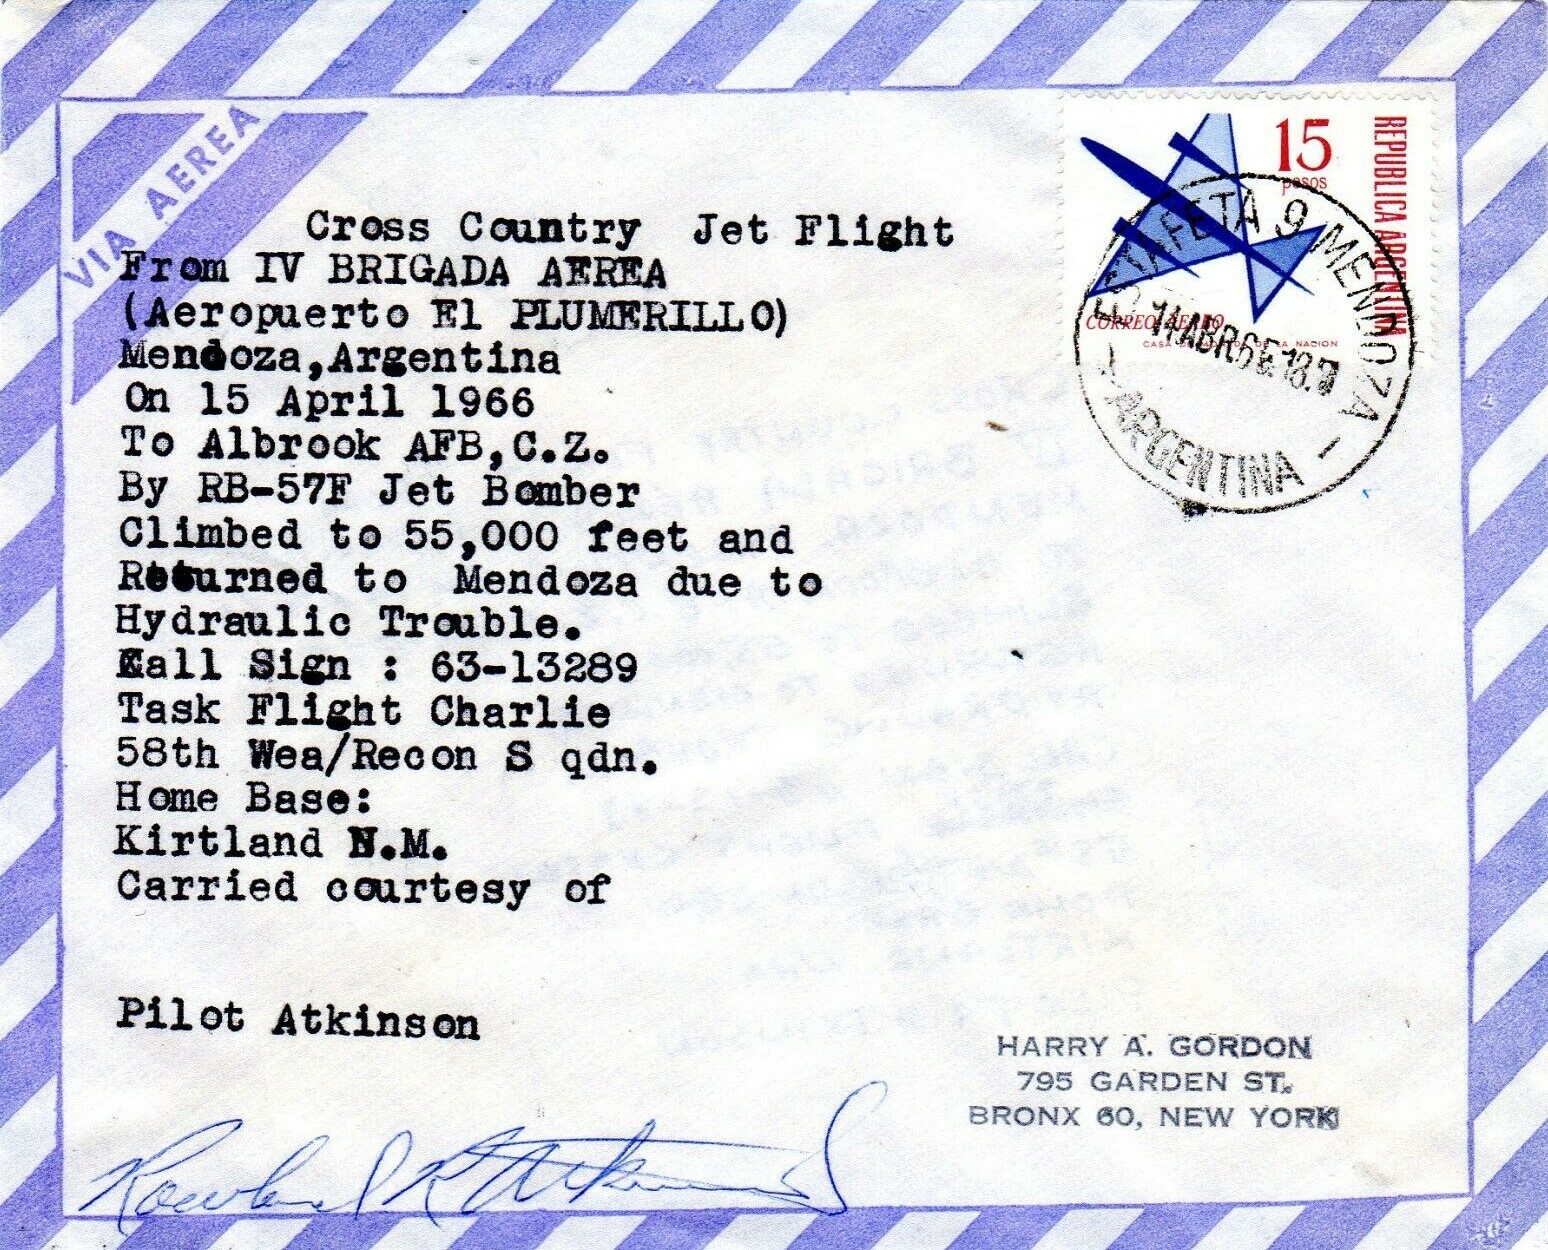 VIA AEREA
15
pesos
REPUBLICA ARGENTINA
CORREO AEREO
CASA DE MONEDA DE LA NACION
ESTAFETA 9 MENDOZA
14 ABR 66 18.
ARGENTINA
Cross Country Jet Flight
From IV BRIGADA AEREA
(Aeropuerto El PLUMERILLO)
Mendoza,Argentina
On 15 April 1966
To Albrook AFB,C.Z.
By RB-57F Jet Bomber
Climbed to 55,000 feet and
Returned to Mendoza due to
Hydraulic Trouble.
Call Sign : 63-13289
Task Flight Charlie
58th Wea/Recon S qdn.
Home Base:
Kirtland N.M.
Carried courtesy of
Pilot Atkinson
Rowland R Atkinson
HARRY A. GORDON
795 GARDEN ST.
BRONX 60, NEW YORK